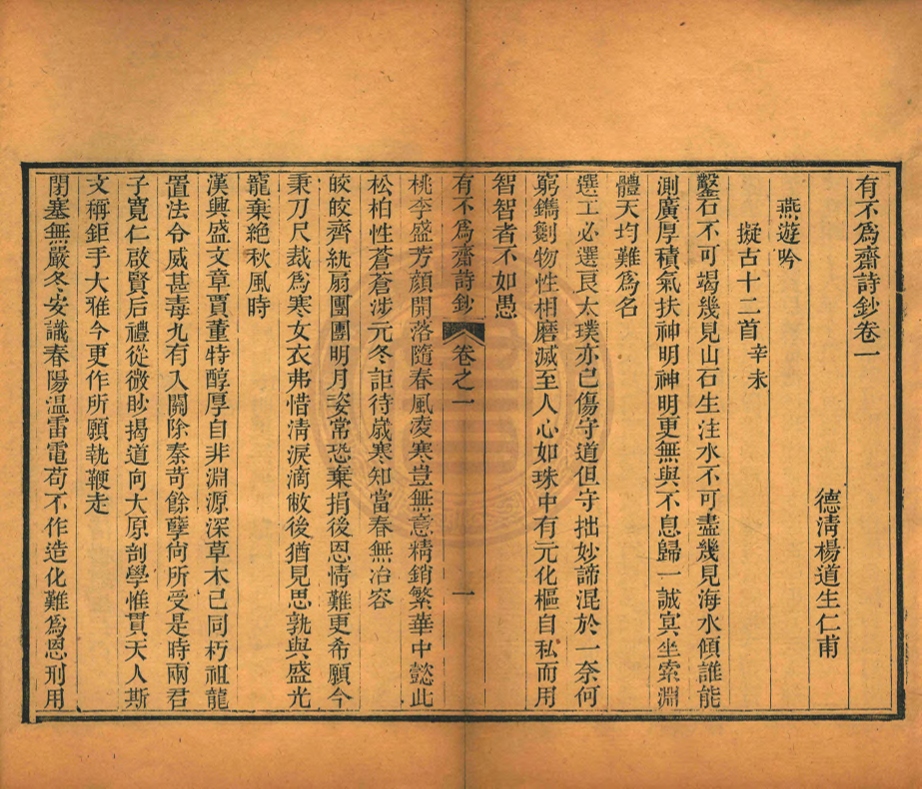 有不爲齋詩鈔卷一
德淸楊道生仁甫
燕遊吟
擬古十二首辛未
鑿石不可竭幾見山石生注水不可盡幾見海水傾誰能
測廣厚積氣扶神明神明更無與不息歸一誠冥坐索淵
體天均難爲名
選工必選良太璞亦已傷守道但守拙妙諦混於一奈何
窮鐫劖物性相磨滅至人心如珠中有元化樞自私而用
智智者不如愚
有不爲齋詩鈔 卷之一 一
桃李盛芳顏開落隨春風凌寒豈無意精銷繁華中懿此
松柏性蒼蒼涉元冬詎待歲寒知當春無冶容
皎皎齊紈扇團團明月姿常恐棄捐後恩情難更希願今
秉刀尺裁爲寒女衣弗惜淸淚滴敝後猶見思孰與盛光
寵棄絕秋風時
漢興盛文章賈董特醇厚自非淵源深草木已同朽祖龍
置法令威甚毒九有入關除秦苛餘孽向所受是時兩君
子寬仁啟賢后禮從微眇揭道向大原剖學惟貫天人斯
文稱鉅手大雅今更作所願執鞭走
閉塞無嚴冬安識春陽温雷電苟不作造化難爲恩刑用